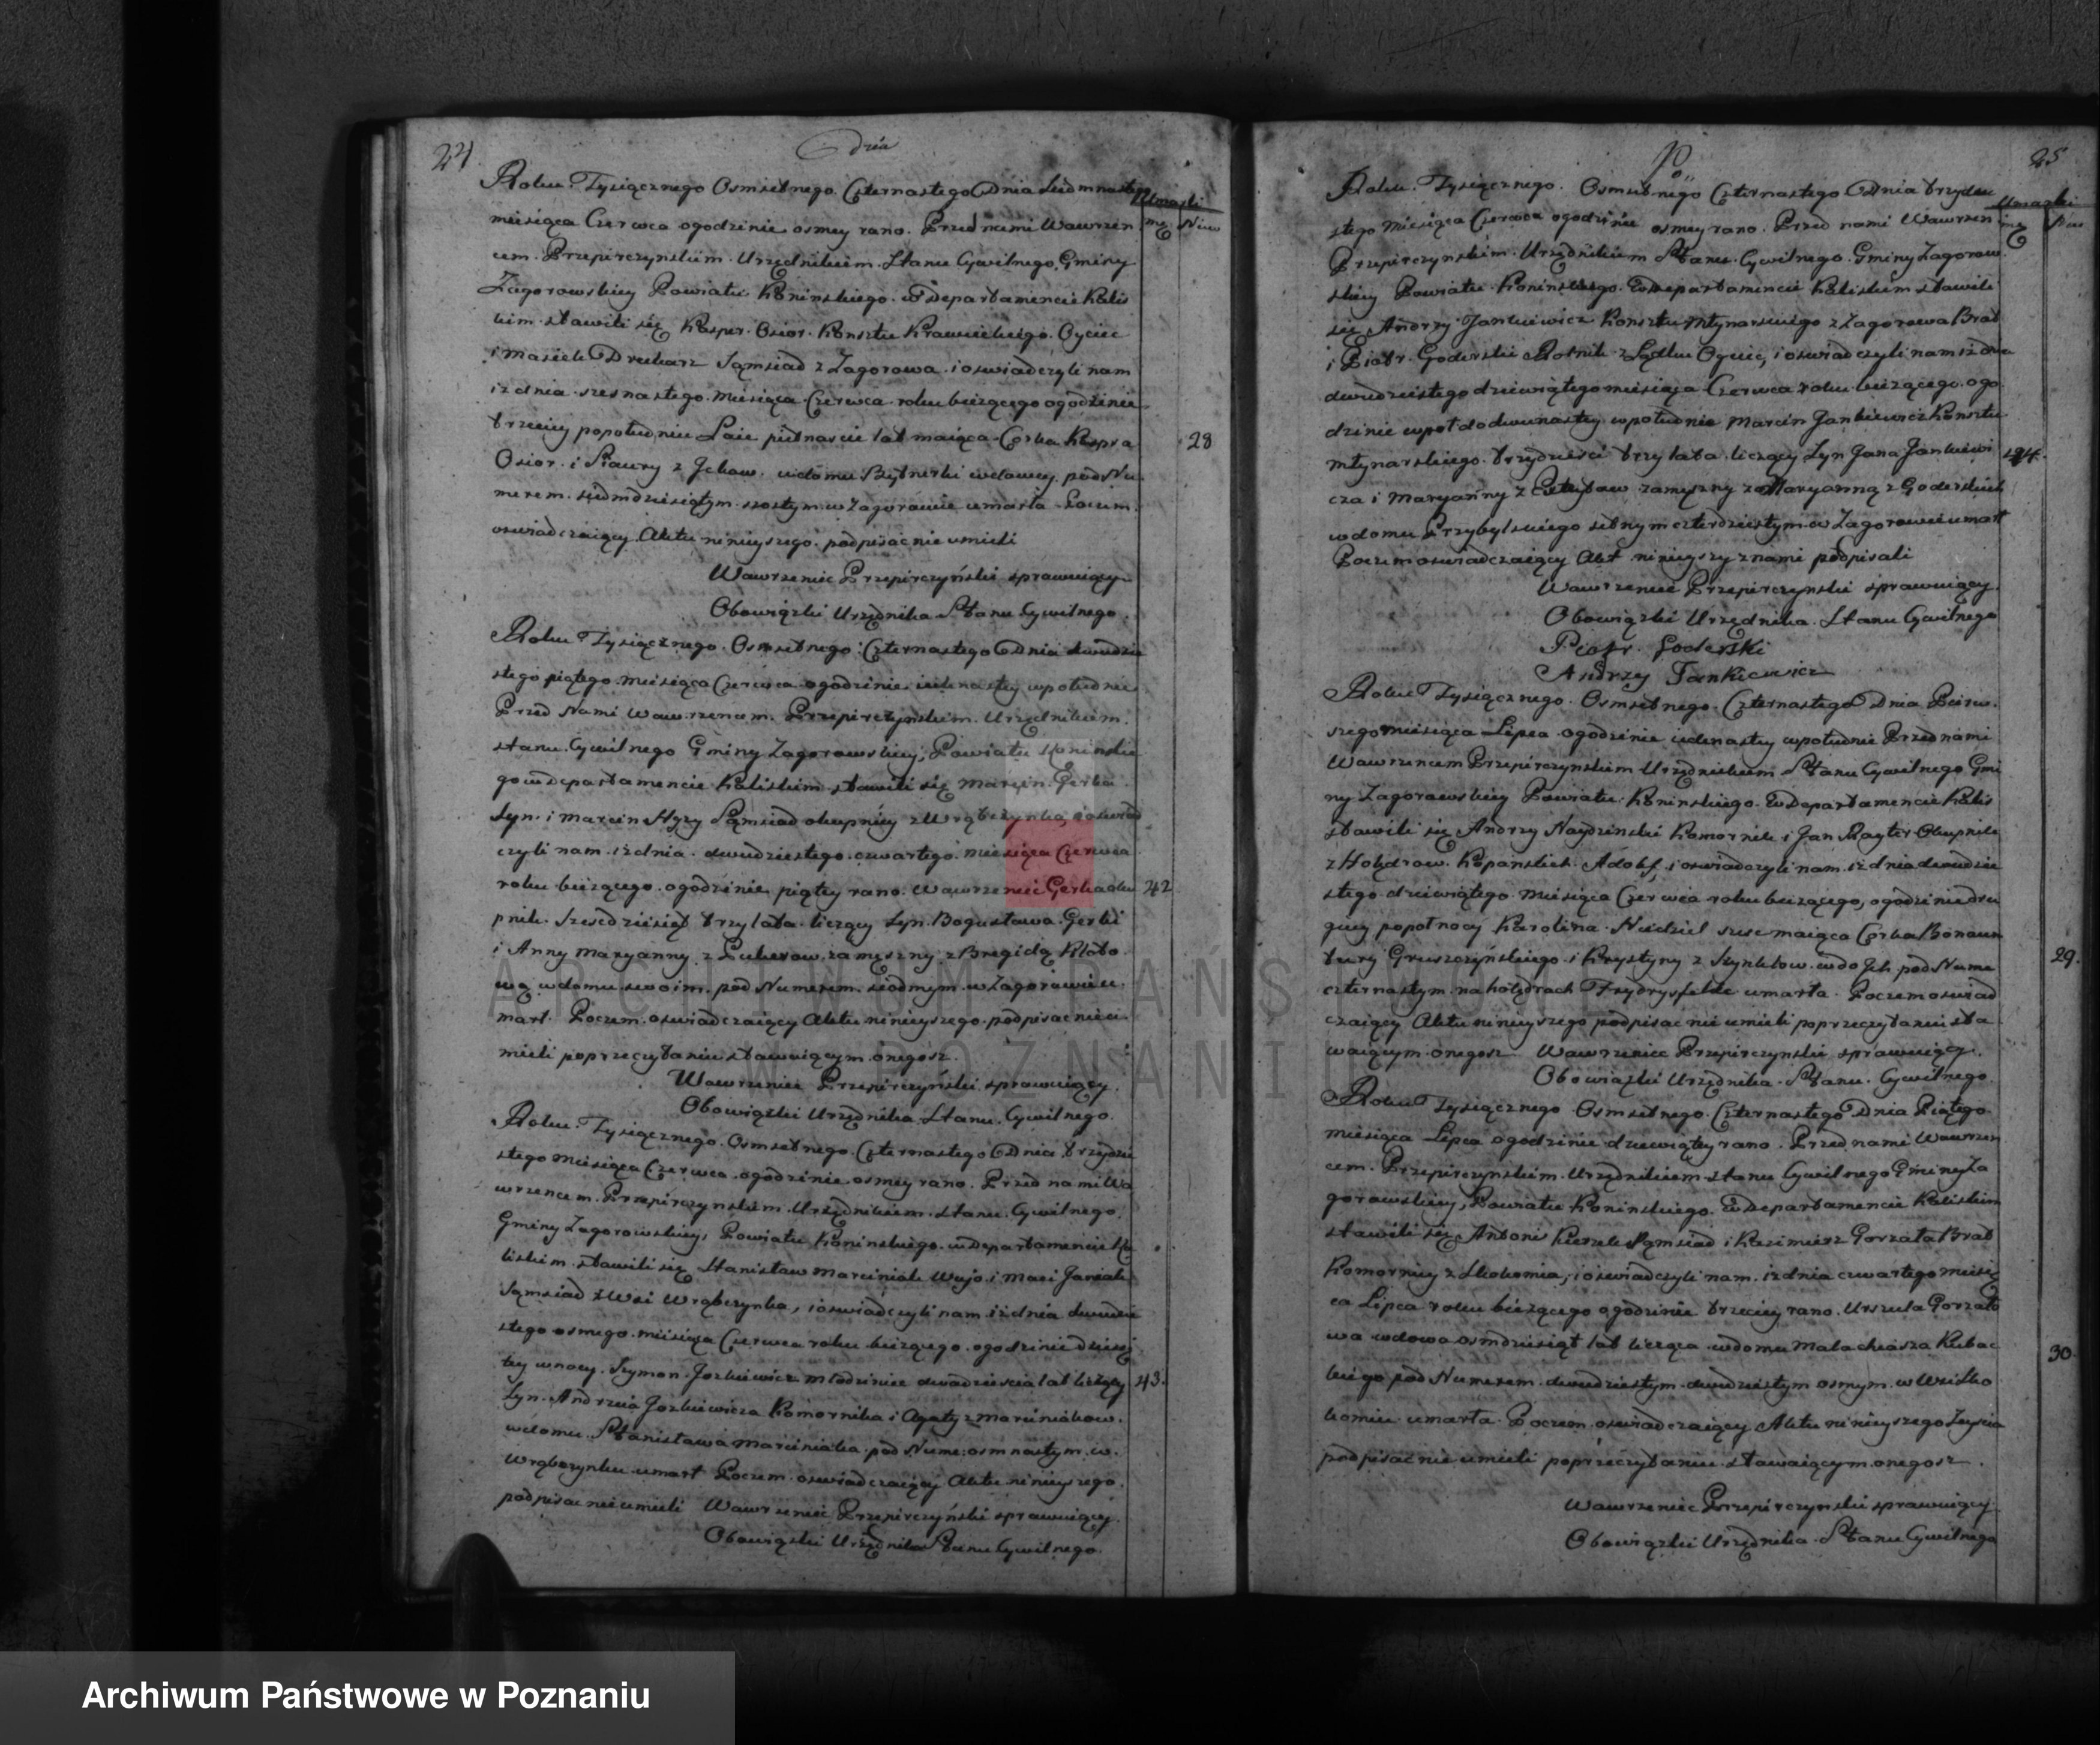 24
dnia
Roku Tysiącznego Osmsetnego Czternastego Dnia siedmnastego
miesiąca Czerwca ogodzinie osmey rano. Przed nami Wawrzen
cem Przepirczynskim Urzędnikiem Stanu Cywilnego Gminy
Zagorowskiey Powiatu Koninskiego w Departamencie Kalis
kim stawili się Kasper Osior Konsztu Krawieckiego Oyciec
i Maciek Drukarz Sąmsiad z Zagorowa i oswiadczyli nam
iż dnia szesnastego Miesiąca Czerwca roku bieżącego ogodzinie
trzeciey popołudniu piętnascie lat maiąca Corka Kaspra
Osior i w domu wdowy pod Nu
merem siedmdziesiątym szostym w Zagorowie umarła Poczem
oswiadczaiący Aktu ninieyszego podpisać nie umieli
Wawrzeniec Przepirczyński sprawuiący
Obowiązki Urzędnika Stanu Cywilnego
Umarli
mę Niew
28
Roku Tysiącznego Osmsetnego Czternastego Dnia dwudzie
stego piątego miesiąca Czerwca ogodzinie iedenastey wpołudnie
Przed Nami Wawrzencem Przepirczynskim Urzędnikiem
stanu Cywilnego Gminy Zagorowskiey, Powiatu Koninskie
go w Departamencie Kaliskim stawili się Marcin Gerka
Syn i Marcin Hyzy Sąmsiad okupnicy z Wrąbczynka, i oswiad
czyli nam iż dnia dwudziestego czwartego miesiąca Czerwca
roku bieżącego ogodzinie piątey rano Wawrzeniec Gerka oku
pnik Szescdziesiąt trzy lata liczący Syn Bogusława Gerki
i Anny Maryanny z zamężny z Bregidą
wą w domu swoim pod Numerem siodmym w Zagorowie u
marł Poczem oswiadczaiący Aktu ninieyszego podpisać nieu
mieli poprzeczytaniu stawaiącym onegosz
Wawrzeniec Przepirczyński sprawuiący
Obowiązki Urzędnika Stanu Cywilnego
42
Roku Tysiącznego Osmsetnego Czternastego Dnia trzydzie
stego Miesiąca Czerwca ogodzinie osmey rano. Przed nami Wa
wrzencem Przepirczynskim Urzędnikiem stanu Cywilnego
Gminy Zagorowskiey Powiatu Koninskiego w Departamencie Ka
liskim stawili się Stanisław Marciniak Wujo i Maci Janiak
Sąmsiad z Wsi Wrąbczynka, i oswiadczyli nam iż dnia dwudzie
stego osmego miesiąca Czerwca roku bieżącego ogodzinie dziesią
tey wnocy Szymon Jozkiewicz młodziniec dwadziescia lat liczący
Syn Andrzeia Jozkiewicza Komornika i Agaty z Marciniakow
wdomu Stanisława Marciniaka pod Nume: osmnastym w
Wrąbczynku umarł Poczem oswiadczaiący Aktu ninieyszego
podpisac nieumieli Wawrzeniec Przepirczyński sprawuiący
Obowiązki Urzędnika Stanu Cywilnego
43
25
Roku Tysiącznego Osmsetnego Czternastego Dnia trzydzie
stego Miesiąca Czerwca ogodzinie osmey rano. Przed nami Wawrzen
Przepirczynskim Urzędnikiem Stanu Cywilnego Gminy Zagorow
skiey Powiatu Koninskiego w Departamencie Kaliskim stawili
się Andrzy Jankiewicz Konsztu Młynarskiego z Zagorowa Brat
i Piotr Goderski Rolnik z Lądku Oyciec, i oswiadczyli nam iż dnia
dwudziestego dziewiątego miesiąca Czerwca roku bieżącego ogo
dzinie wpoł do dwunastey wpołudnie Marcin Jankiewicz Konsztu
Młynarskiego trzydziesci trzy lata liczący Syn Jana Jankiewi
cza i Maryanny z zamężny z Maryanną z Goderskich
w domu Przybylskiego setnym czterdziestym w Zagorowie umarł
Poczem oswiadczaiący Akt ninieyszy znami podpisali
Wawrzeniec Przepirczynski sprawuiący
Obowiązki Urzędnika Stanu Cywilnego
Piotr Goderski
Andrzy Jankiewicz
Umarli
mę Niew
Roku Tysiącznego Osmsetnego Czternastego Dnia Pierw
szego miesiąca Lipca ogodzinie iedenastey wpołudnie Przed nami
Wawrzencem Przepirczynskim Urzędnikiem Stanu Cywilnego Gmi
ny Zagorowskiey Powiatu Koninskiego w Departamencie Kalis
stawili się Andrzy Naydzinski Komornik i Jan Rayter Okupnik
z Holędrow Kopanskich Adolf, i oswiadczyli nam iż dnia dwudzie
stego dziewiątego Miesiąca Czerwca roku bieżącego, ogodzinie dru
giey popołnocy Karolina Niedziel szesc maiąca Corka Bonawen
tury Gruszczyńskiego i Krystyny z wdo Ich pod Nume
czternastym na holędrach Frydrysfeldt umarła. Poczem oswiad
czaiący Aktu ninieyszego podpisać nie umieli poprzeczytaniu sta
waiącym onegosz Wawrzeniec Przepirczynski sprawuiący
Obowiązki Urzędnika Stanu Cywilnego
29.
Roku Tysiącznego Osmsetnego Czternastego Dnia Piątego
miesiąca Lipca ogodzinie dziewiątey rano. Przed nami Wawrzen
cem Przepirczynskim Urzędnikiem stanu Cywilnego Gminy Za
gorowskiey, Powiatu Koninskiego w Departamencie Kaliskim
stawili się Antoni Sąmsiad i Kazimierz Gorzata Brat
Komornicy z i oswiadczyli nam iż dnia czwartego miesią
ca Lipca roku bieżącego ogodzinie trzeciey rano Urszula Gorzato
wa wdowa osmdziesiąt lat licząca wdomu Malachiasza Kubac
kiego pod Numerem dwudziestym dwudziestym osmym w Wsi Sko
komiu umarła. Poczem oswiadczaiący Aktu ninieyszego Zeyscia
podpisać nie umieli poprzeczytaniu stawaiącym onegosz.
Wawrzeniec Przepirczynski sprawuiący
Obowiązki Urzędnika Stanu Cywilnego
30
ARCHIWUM PAŃSTWOWE
W POZNANIU
Archiwum Państwowe w Poznaniu